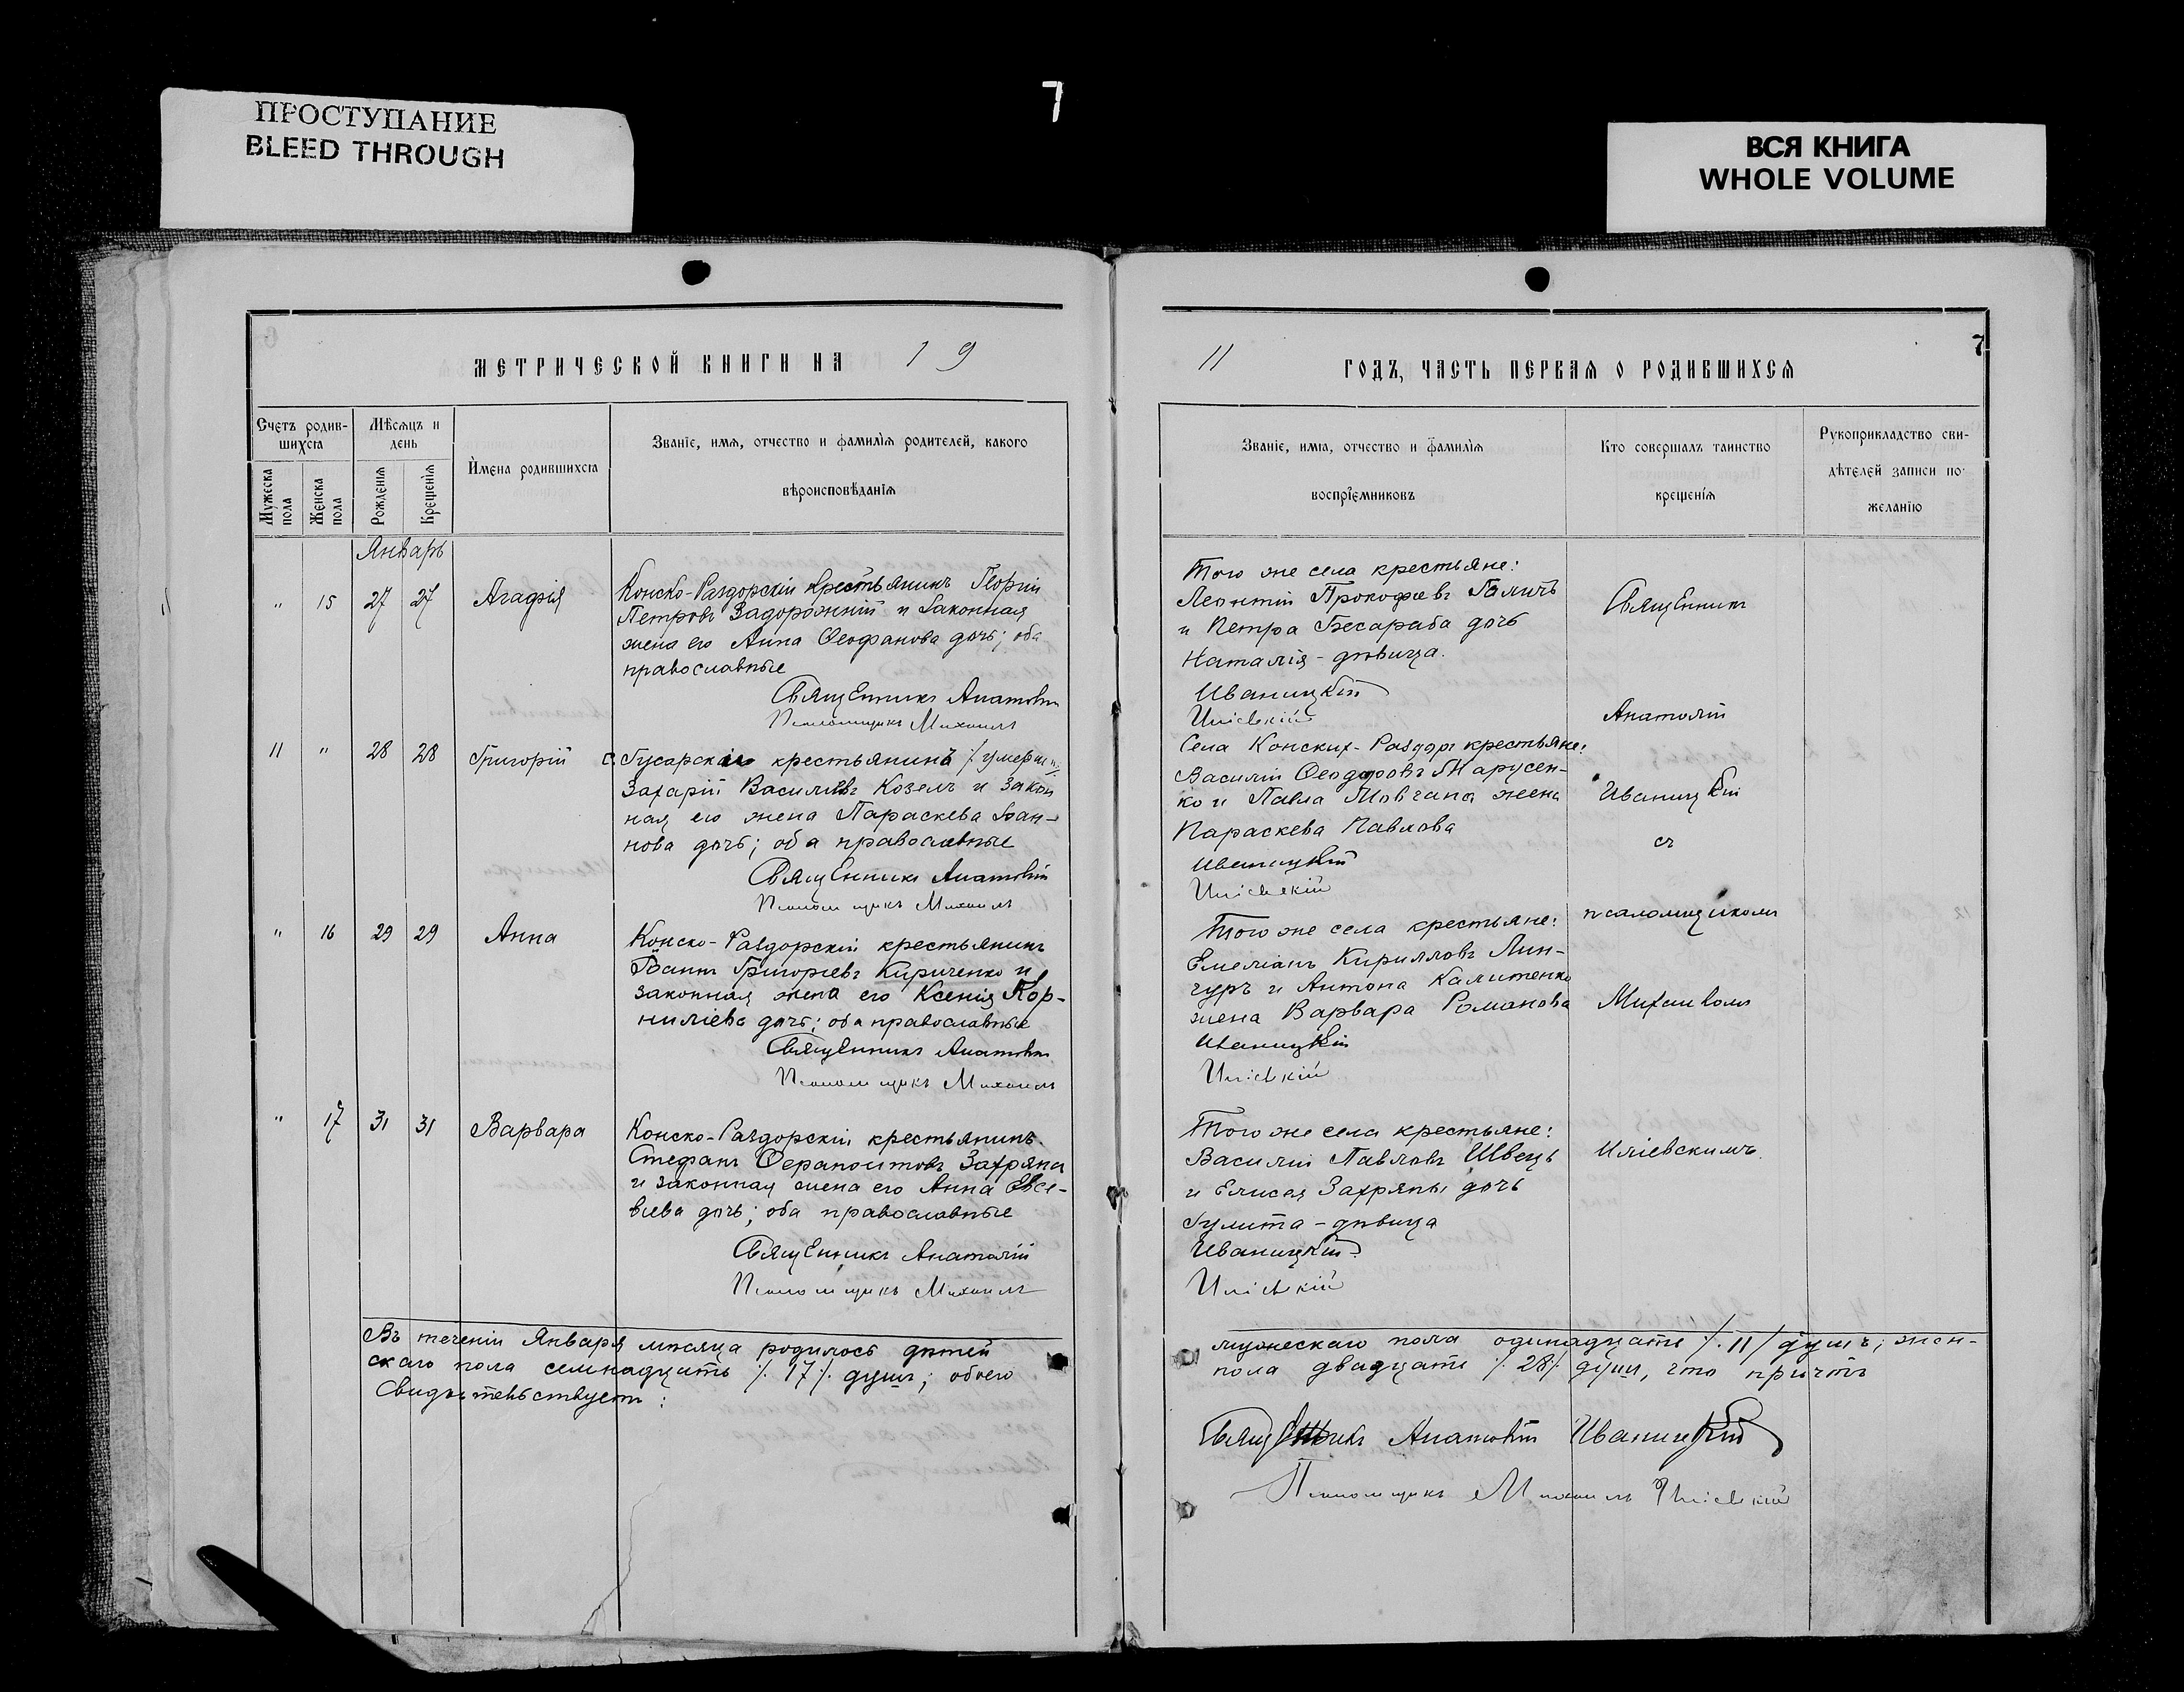 7
ПРОСТУПАНИЕ
BLEED THROUGH
ВСЯ КНИГА
WHOLE VOLUME
МЕТРИЧЕСКОЙ КНИГИ НА 19
Счетъ родив-
шихся
Мѣсяцъ и
день
Имена родившихся
Званіе, имя, отчество и фамилія родителей, какого
вѣроисповѣданія
Мужеска
пола
Женска
пола
Рожденія
Крещенія
Январь
" 15 27 27 Агафія
Конско-Раздорскій крестьянинъ Георгій
Петровъ Задорожній и законная
жена его Анна Ѳеофанова дочь; оба
православные
Священникъ Анатолій
Псаломщикъ Михаилъ
11 " 28 28 Григорій
с. Гусарска крестьянина /умерш
Захарій Васильевъ Козелъ и закон
ная его жена Параскева Іоан-
нова дочь; оба православные
Священникъ Анатолій
Псаломщикъ Михаилъ
" 16 29 29 Анна
Конско-Раздорскій крестьянинъ
Іоаннъ Григоріевъ Кириченко и
законная жена его Ксенія Кор-
ниліева дочь; оба православные
Священникъ Анатолій
Псаломщикъ Михаилъ
" 17 31 31 Варвара
Конско-Раздорскій крестьянинъ
Стефанъ Ѳерапонтовъ Захряпа
и законная жена его Анна Евсе-
віева дочь; оба православные
Священникъ Анатолій
Псаломщикъ Михаилъ
Въ теченіи Января мѣсяца родилось дѣтей
скаго пола семнадцать /.17/. душъ; обоего
Свидѣтельствуетъ:
7
11 ГОДЪ, ЧАСТЬ ПЕРВАЯ О РОДИВШИХСЯ
Званіе, имя, отчество и фамилія
воспріемниковъ
Кто совершалъ таинство
крещенія
Рукоприкладство сви-
дѣтелей записи по
желанію
Того же села крестьяне:
Леонтій Прокофіевъ
и Петра Бесараба дочь
Наталія - дѣвица.
Иваницкій
Иліевскій
Села Конскихъ-Раздоръ крестьяне:
Василій Ѳеодоровъ Марусен-
ко и Павла Мовчана жена
Параскева Павлова
Иваницкій
Иліевскій
Того же села крестьяне:
Емеліанъ Кирилловъ Лин-
чуръ и Антона Калитенко
жена Варвара Романова
Иваницкій
Иліевскій
Того же села крестьяне:
Василій Павловъ Швецъ
и Елисея Захряпы дочь
Іулита - дѣвица
Иваницкій
Иліевскій
Священникъ
Анатолій
Иваницкій
съ
псаломщикомъ
Михаиломъ
Иліевскимъ.
мужескаго пола одинадцать /.11/ душъ; жен-
пола двадцать /.28/. душъ, что причтъ
Священникъ Анатолій Иваницкій
Псаломщикъ Михаилъ Иліевскій